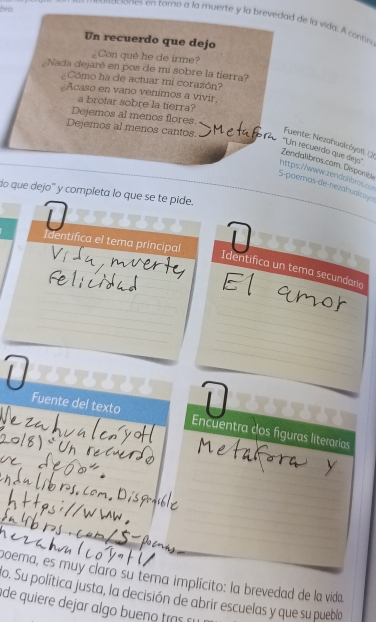 en torno a la muerte y la brevedad de la vida. A continu
Un recuerdo que dejo
¿Con qué he de irme?
¿Nada dejaré en pos de mi sobre la tierra?
¿Cómo ha de actuar mi corazón?
¿Acaso en vano venimos a vivir,
a brotar sobre la tierra?
Dejemos al menos flores.
Dejemos al menos cantos.
Metafora
Fuente: Nezahualcóyotl (20
"Un recuerdo que dejo"
Zendalibros.com. Disponible
https://www.zendalibros.com
5-poemas-de-nezahualcoyo
do que dejo" y completa lo que se te pide.
Identifica el tema principal
Vida, muerte y
Felicidad
Identifica un tema secundario
El amor
Fuente del texto
Nezahualcóyotl
2018) "Un recuerdo
ue dejo".
endalibros.com. Disponible
https://www.
zendalibros.com/5-poemas-
nezahualcoyotl/
Encuentra dos figuras literarias
Metafora y
poema, es muy claro su tema implícito: la brevedad de la vida.
do. Su política justa, la decisión de abrir escuelas y que su pueblo
nde quiere dejar algo bueno tras su